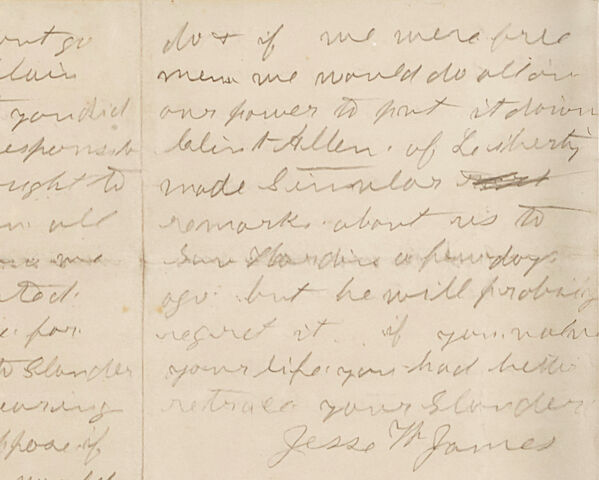 go
plain
you did
responsib
right to
all
me
ated
for
to Slander
earing
ppose if
do & if we were free
men we would do all in
our power to put it down
Clint Allen. of Liberty
made Simular
remarks about us to
a few days
ago but he will probaly
regret it. if you value
your life you had better
retrace your Slander
Jesse W James